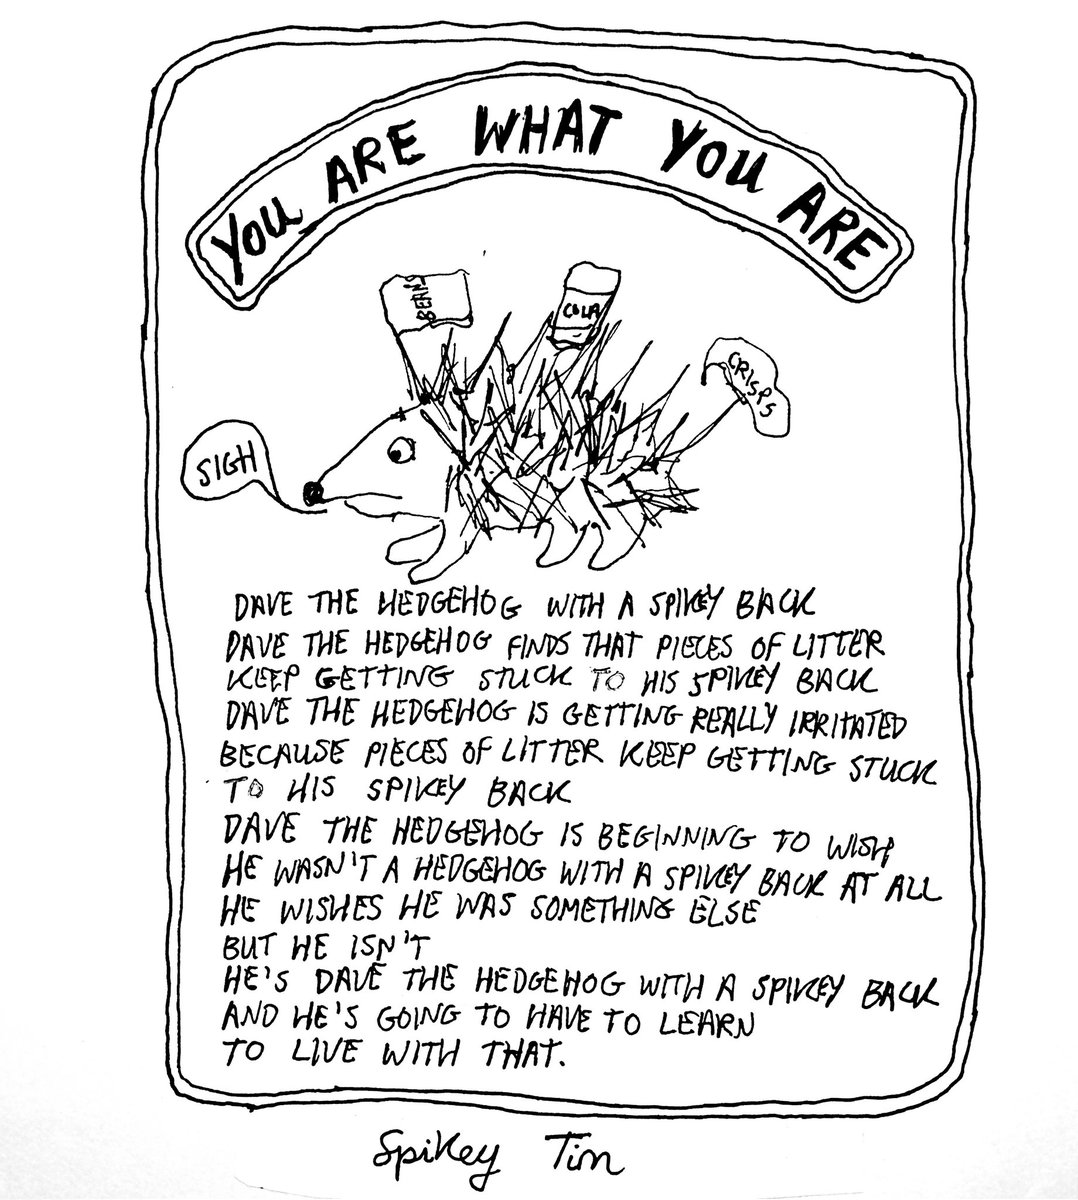 YOU ARE WHAT YOU ARE
BEANS
COLA
CRISPS
SIGH
DAVE THE HEDGEHOG WITH A SPIKEY BACK
DAVE THE HEDGEHOG FINDS THAT PIECES OF LITTER
KEEP GETTING STUCK TO HIS SPIKEY BACK
DAVE THE HEDGEHOG IS GETTING REALLY IRRITATED
BECAUSE PIECES OF LITTER KEEP GETTING STUCK
TO HIS SPIKEY BACK
DAVE THE HEDGEHOG IS BEGINNING TO WISH
HE WASN'T A HEDGEHOG WITH A SPIKEY BACK AT ALL
HE WISHES HE WAS SOMETHING ELSE
BUT HE ISN'T
HE'S DAVE THE HEDGEHOG WITH A SPIKEY BACK
AND HE'S GOING TO HAVE TO LEARN
TO LIVE WITH THAT.
Spikey Tim